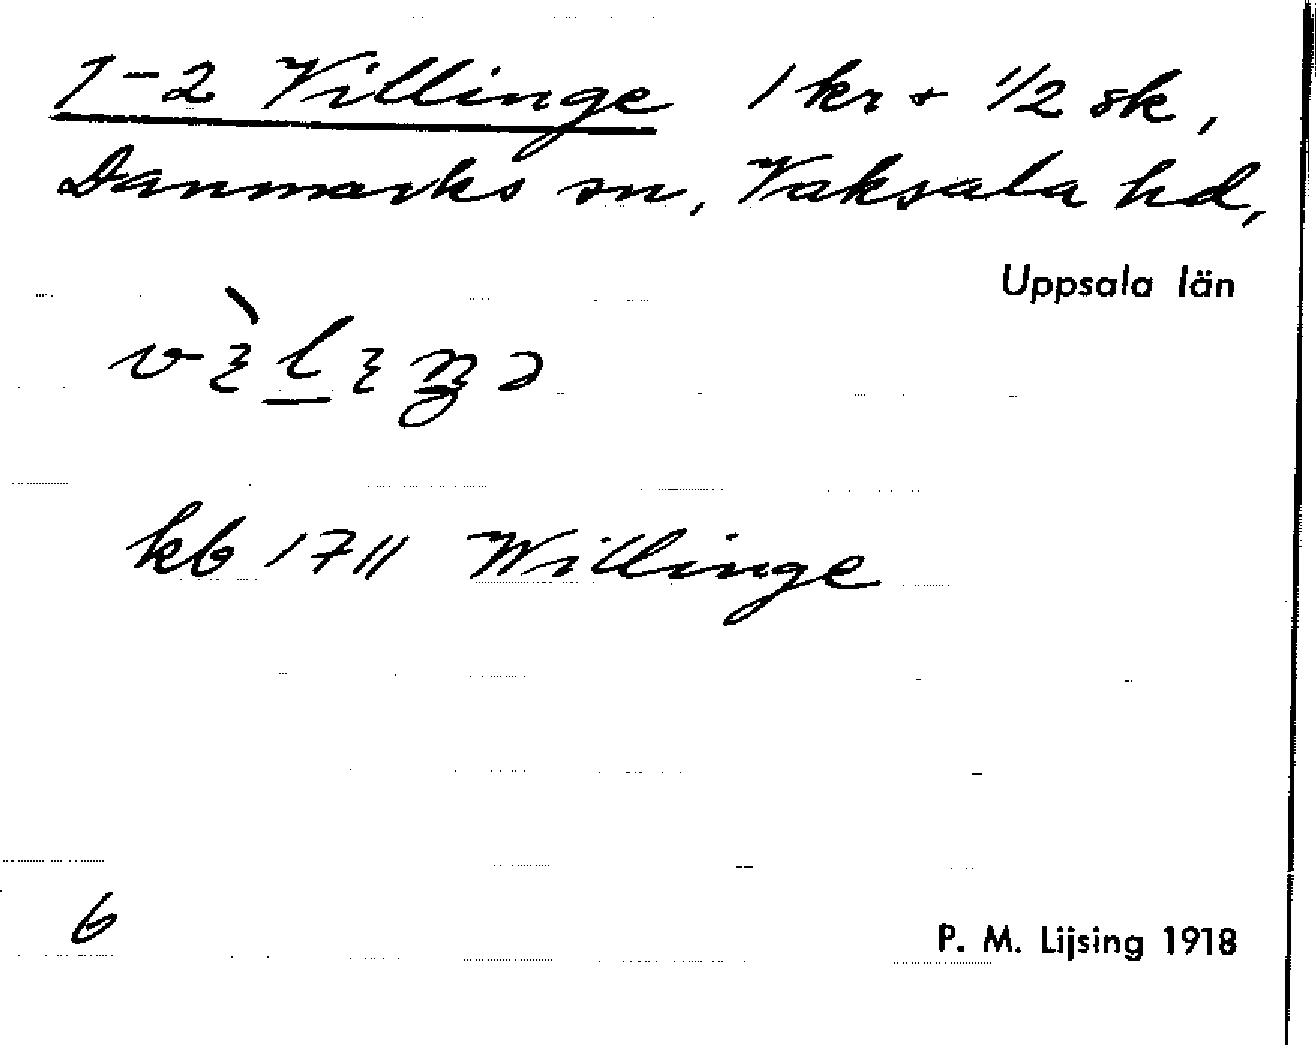 1-2 Villinge 1 kr + 1/2 sk,
Danmarks sn, Vaksala hd,
Uppsala län
kb 1711 Willinge
6
P. M. Lijsing 1918